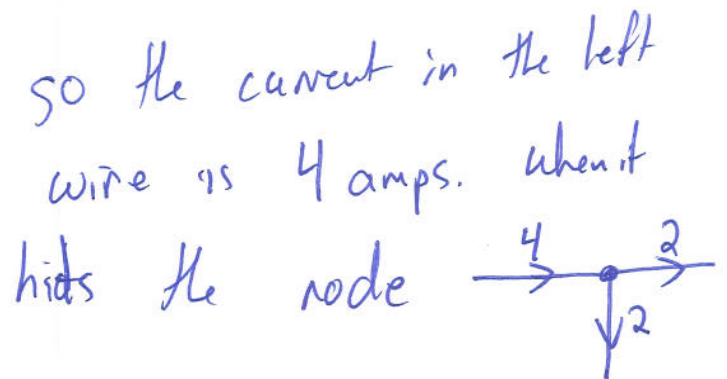 so the current in the left
wire is 4 amps. when it
hits the node
4 2
2